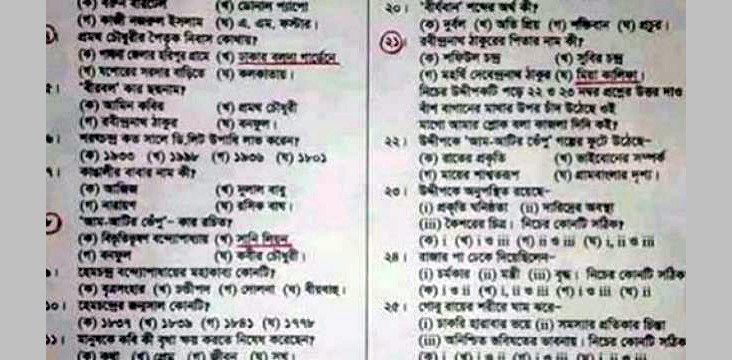 (গ) কাজী নজরুল ইসলাম (ঘ) এ. এম. ফস্টার।
প্রমথ চৌধুরীর পৈতৃক নিবাস কোথায়?
(ক) পাবনা জেলার হরিপুর গ্রামে (খ) ঢাকার বলদা গার্ডেনে
(গ) যশোরের সরদার বাড়িতে (ঘ) কলকাতায়।
৫। 'বীরবল' কার ছদ্মনাম?
(ক) আমিন কবির (খ) প্রমথ চৌধুরী
(গ) রবীন্দ্রনাথ ঠাকুর (ঘ) বনফুল।
৬। শরৎচন্দ্র কত সালে ডি.লিট উপাধি লাভ করেন?
(ক) ১৯৩৩ (খ) ১৯৯৮ (গ) ১৯৩৬ (ঘ) ১৮০১
৭। কাঙালীর বাবার নাম কী?
(ক) আজিজ (খ) দুলাল বাবু
(গ) নারায়ণ (ঘ) রসিক বাঘ।
'আম-আটির ভেঁপু'- কার রচিত?
(ক) বিভূতিভূষণ বন্দ্যোপাধ্যায় (খ) সানি লিয়ন
(গ) বনফুল (ঘ) কবীর চৌধুরী।
হেমচন্দ্র বন্দ্যোপাধ্যায়ের মহাকাব্য কোনটি?
(ক) বৃত্রসংহার (খ) চণ্ডীপদ (গ) দোলনা (ঘ) বীরবাহু।
১০। হেমচন্দ্রের জন্মসাল কোনটি?
(ক) ১৮৩৭ (খ) ১৮৩৮ (গ) ১৮৪১ (ঘ) ১৭৭৮
১১। মানুষকে কবি কী বৃথা ক্ষয় করতে নিষেধ করেছেন?
(ক) কথা (খ) প্রেম (গ) জীবন (ঘ) সখ।
২০। 'বীর্যবান' শব্দের অর্থ কী?
(ক) দুর্বল (খ) অতি প্রিয় (গ) শক্তিবান (ঘ) প্রচুর।
২১। রবীন্দ্রনাথ ঠাকুরের পিতার নাম কী?
(ক) শফিউল চন্দ্র (খ) সুবির চন্দ্র
(গ) মহর্ষি দেবেন্দ্রনাথ ঠাকুর (ঘ) মিয়া কালিফা।
নিচের উদ্দীপকটি পড়ে ২২ ও ২৩ নম্বর প্রশ্নের উত্তর দাও
বাঁশ বাগানের মাথার উপর চাঁদ উঠেছে ওই
মাগো আমার শ্লোক বলা কাজলা দিদি কই?
২২। উদ্দীপকে 'আম-আটির ভেঁপু' গল্পের ফুটে উঠেছে-
(ক) রাতের প্রকৃতি (খ) ভাইবোনের সম্পর্ক
(গ) মায়ের শাশ্বতরূপ (ঘ) গ্রামবাংলার দৃশ্য।
২৩। উদ্দীপকে অনুপস্থিত রয়েছে-
(i) প্রকৃতি ঘনিষ্ঠতা (ii) দারিদ্রের অবস্থা
(iii) কৈশরের চিত্র। নিচের কোনটি সঠিক?
(ক) i (খ) i ও iii (গ) ii ও iii (ঘ) i, ii ও iii
২৪। রাজার পা ঢেকে দিয়েছিলেন-
(i) চর্মকার (ii) মন্ত্রী (iii) বৃদ্ধ। নিচের কোনটি সঠিক
(ক) i ও ii (খ) i, ii ও iii (গ) i ও iii (ঘ) ii
২৫। গোবু রায়ের শরীরে ঘাম ঝরে-
(i) চাকরি হারাবার ভয়ে (ii) সমস্যার প্রতিকার চিন্তা
(iii) অনিশ্চিত ভবিষ্যতের ভাবনায়। নিচের কোনটি সঠিক